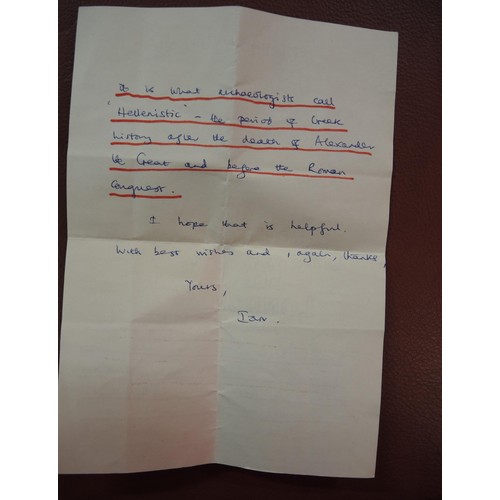 It is what archaeologists call
'Hellenistic' - the period of Greek
history after the death of Alexander
the Great and before the Roman
Conquest.
I hope that is helpful.
With best wishes and, again, thanks,
Yours,
Ian.